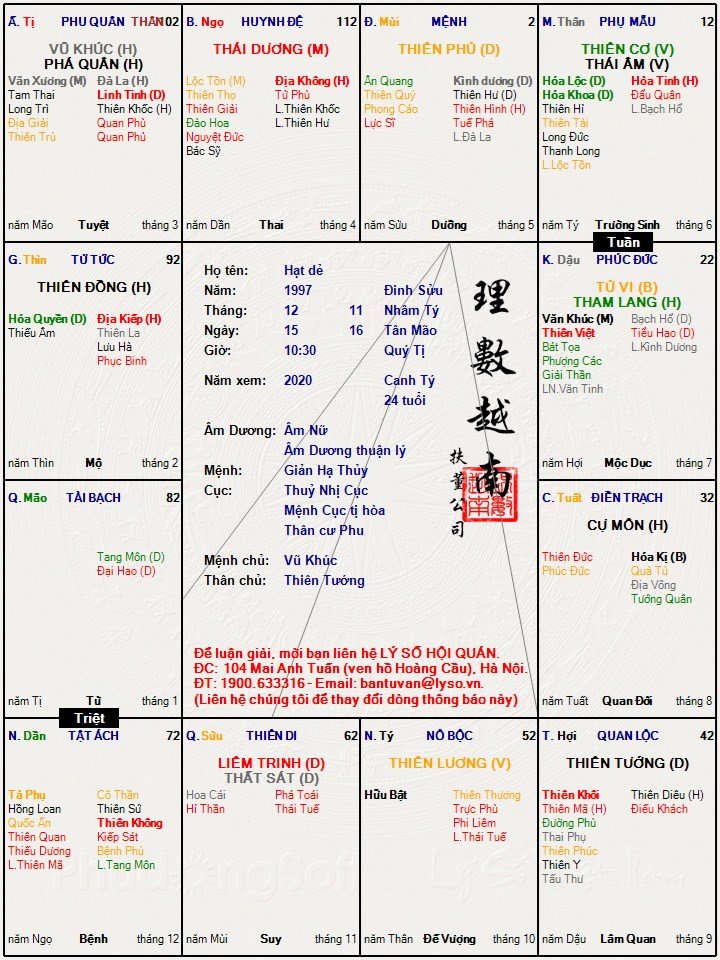 Ấ. Tị PHU QUÂN THÂN 102
VŨ KHÚC (H)
PHÁ QUÂN (H)
Văn Xương (M) Đà La (H)
Tam Thai Linh Tinh (D)
Long Trì Thiên Khốc (H)
Địa Giải Quan Phù
Thiên Trù Quan Phủ
năm Mão Tuyệt tháng 3
B. Ngọ HUYNH ĐỆ 112
THÁI DƯƠNG (M)
Lộc Tồn (M) Địa Không (H)
Thiên Thọ Tử Phù
Thiên Giải L.Thiên Khốc
Đào Hoa L.Thiên Hư
Nguyệt Đức
Bác Sỹ
năm Dần Thai tháng 4
Đ. Mùi MỆNH 2
THIÊN PHỦ (D)
Ân Quang Kình dương (D)
Thiên Quý Thiên Hư (D)
Phong Cáo Thiên Hình (H)
Lực Sĩ Tuế Phá
L.Đà La
năm Sửu Dưỡng tháng 5
M. Thân PHỤ MẪU 12
THIÊN CƠ (V)
THÁI ÂM (V)
Hóa Lộc (D) Hỏa Tinh (H)
Hóa Khoa (D) Đẩu Quân
Thiên Hỉ L.Bạch Hổ
Thiên Tài
Long Đức
Thanh Long
L.Lộc Tồn
năm Tý Trường Sinh tháng 6
Tuần
G. Thìn TỬ TỨC 92
THIÊN ĐỒNG (H)
Hóa Quyền (D) Địa Kiếp (H)
Thiếu Âm Thiên La
Lưu Hà
Phục Binh
năm Thìn Mộ tháng 2
Họ tên: Hạt dẻ
Năm: 1997 Đinh Sửu
Tháng: 12 11 Nhâm Tý
Ngày: 15 16 Tân Mão
Giờ: 10:30 Quý Tị
Năm xem: 2020 Canh Tý
24 tuổi
Âm Dương: Âm Nữ
Âm Dương thuận lý
Mệnh: Giản Hạ Thủy
Cục: Thuỷ Nhị Cục
Mệnh Cục tị hòa
Thân cư Phu
Mệnh chủ: Vũ Khúc
Thân chủ: Thiên Tướng
理數越南
扶董公司
Để luận giải, mời bạn liên hệ LÝ SỐ HỘI QUÁN.
ĐC: 104 Mai Anh Tuấn (ven hồ Hoàng Cầu), Hà Nội.
ĐT: 1900.633316 - Email: bantuvan@lyso.vn.
(Liên hệ chúng tôi để thay đổi dòng thông báo này)
K. Dậu PHÚC ĐỨC 22
TỬ VI (B)
THAM LANG (H)
Văn Khúc (M) Bạch Hổ (D)
Thiên Việt Tiểu Hao (D)
Bát Tọa L.Kình Dương
Phượng Các
Giải Thần
LN.Văn Tinh
năm Hợi Mộc Dục tháng 7
Q. Mão TÀI BẠCH 82
Tang Môn (D)
Đại Hao (D)
năm Tị Tử tháng 1
Triệt
C. Tuất ĐIỀN TRẠCH 32
CỰ MÔN (H)
Thiên Đức Hóa Kị (B)
Phúc Đức Quả Tú
Địa Võng
Tướng Quân
năm Tuất Quan Đới tháng 8
N. Dần TẬT ÁCH 72
Tả Phụ Cô Thần
Hồng Loan Thiên Sứ
Quốc Ấn Thiên Không
Thiên Quan Kiếp Sát
Thiếu Dương Bệnh Phù
L.Thiên Mã L.Tang Môn
năm Ngọ Bệnh tháng 12
Q. Sửu THIÊN DI 62
LIÊM TRINH (D)
THẤT SÁT (D)
Hoa Cái Phá Toái
Hỉ Thần Thái Tuế
năm Mùi Suy tháng 11
N. Tý NÔ BỘC 52
THIÊN LƯƠNG (V)
Hữu Bật Thiên Thương
Trực Phù
Phi Liêm
L.Thái Tuế
năm Thân Đế Vượng tháng 10
T. Hợi QUAN LỘC 42
THIÊN TƯỚNG (D)
Thiên Khôi Thiên Diêu (H)
Thiên Mã (H) Điếu Khách
Đường Phù
Thai Phụ
Thiên Phúc
Thiên Y
Tấu Thư
năm Dậu Lâm Quan tháng 9